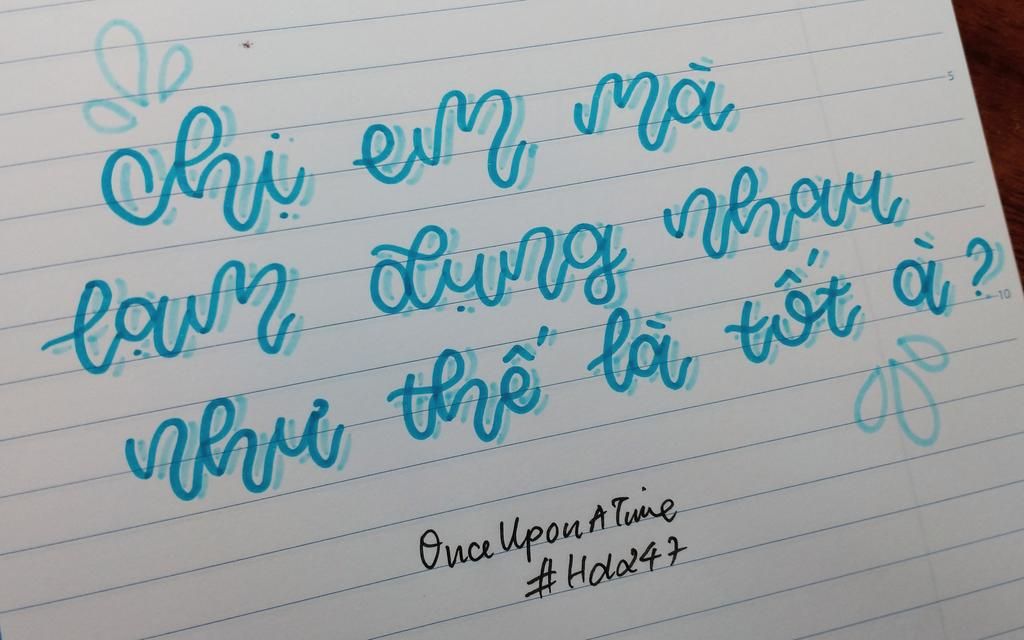 Chị em mà
lạm dụng nhau
như thế là tốt à?
OnceUponATime
#Hda247
5
10